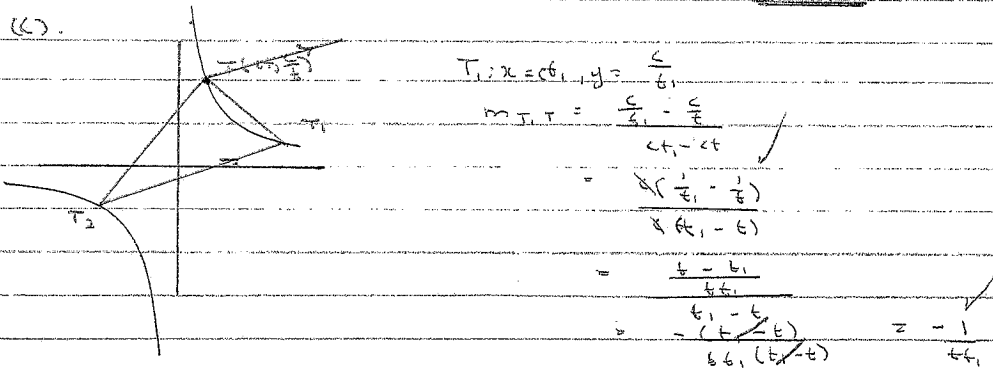 (c).
T(ct, c/t)
T₁
T₂
T₁: x = ct₁, y = c/t₁
m T₁T = (c/t₁ - c/t) / (ct₁ - ct)
= c(1/t₁ - 1/t) / c(t₁ - t)
= ((t - t₁)/(tt₁)) / (t₁ - t)
= -(t₁ - t) / (tt₁(t₁ - t)) = -1/(tt₁)